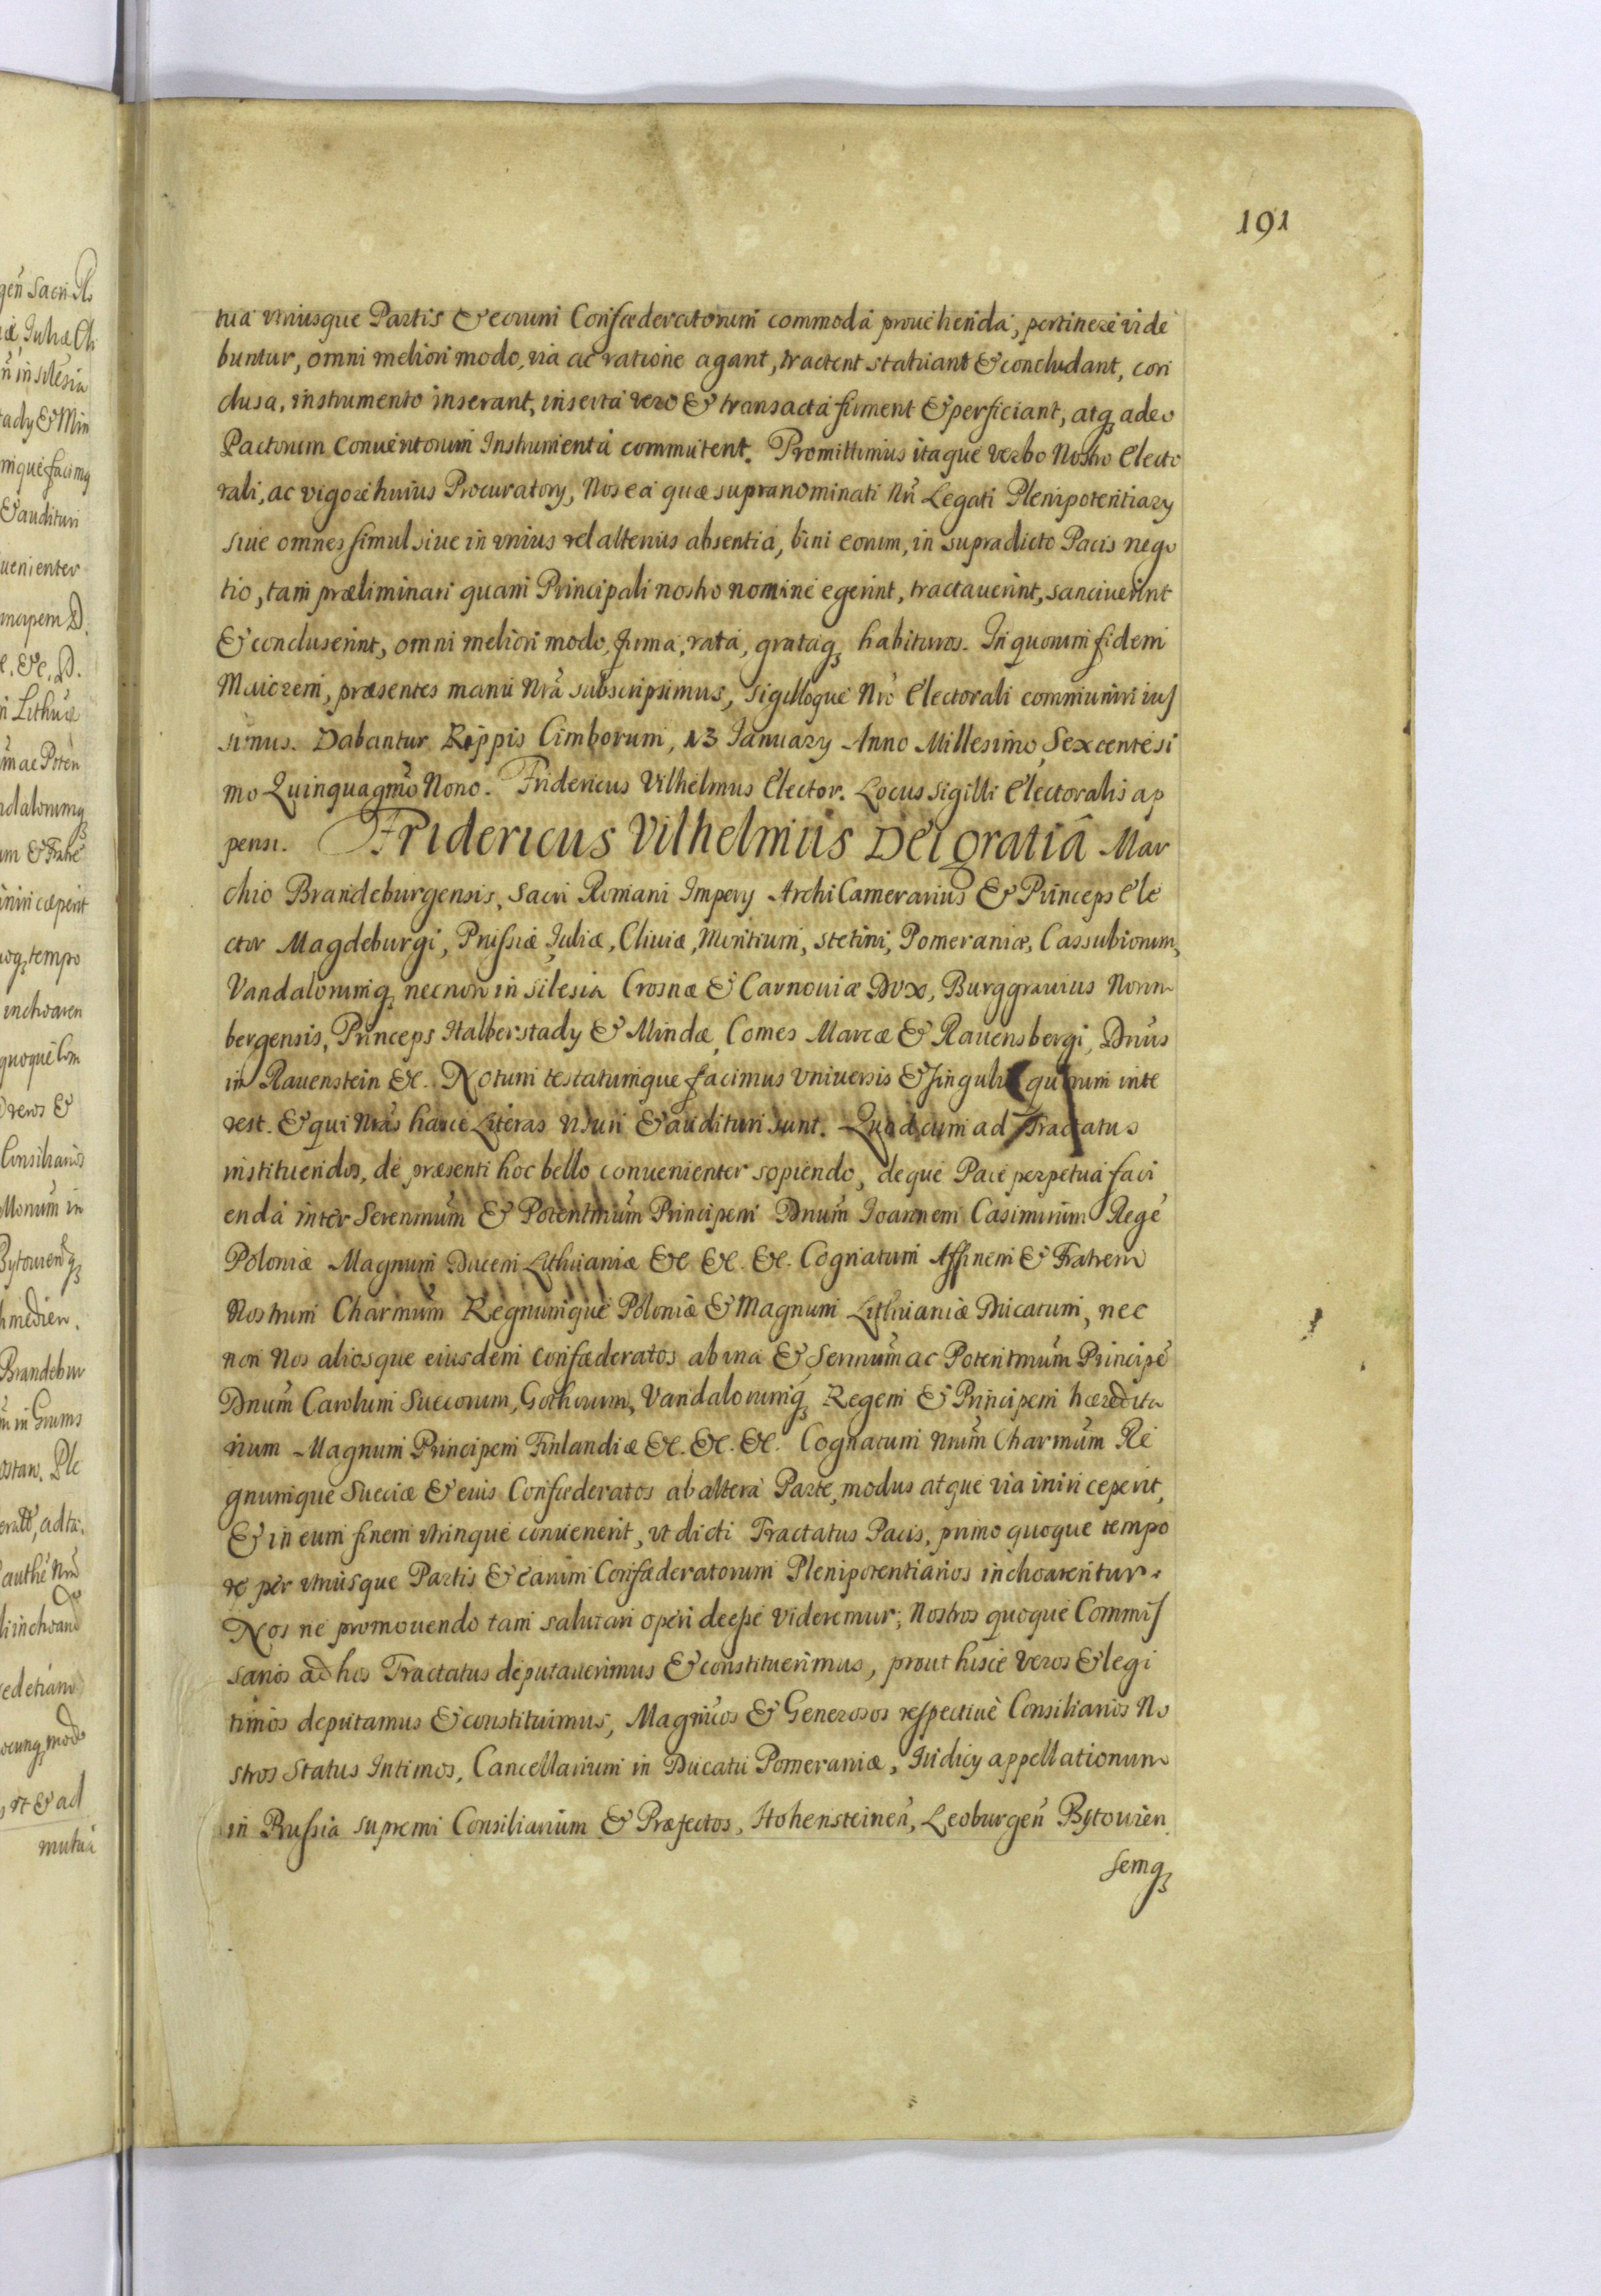 191
tua vtriusque Partis & eorum Confæderatorum commoda prouehenda, pertinere vide
buntur, omni meliori modo, via ac ratione agant, tractent statuant & concludant, con
clusa, instrumento inserant, inserta vero & transacta firment & perficiant, atq, adeo
Pactorum Conuentorum Instrumenta commutent. Promittimus itaque verbo Nostro Electo
rali, ac vigore huius Procuratory, Nos ea quæ supranominati Nri Legati Plenipotentiary
siue omnes simul siue in vnius vel alterius absentia, bini eorum, in supradicto Pacis nego
tio, tam præliminari quam Principali nostro nomine egerint, tractauerint, sanciuerint
& concluserint, omni meliori modo, firma, rata, grataq, habituros. In quorum fidem
Maiorem, præsentes manu Nra subscripsimus, sigilloque Nro Electorali communiri ius
simus. Dabantur Rippis Cimbrorum, 23 January Anno Millesimo, Sexcentesi
mo Quinquagmo Nono. Fridericus Vilhelmus Elector. Locus sigilli Electoralis ap
pensi. Fridericus Vilhelmus Dei gratiâ Mar
chio Brandeburgensis, Sacri Romani Impery ArchiCamerarius & Princeps Ele
ctor Magdeburgi, Prussiæ, Juliæ, Cliuiæ, Montium, Stetini, Pomeraniæ, Cassubiorum,
Vandalorumq, necnon in Silesia Crosnæ & Carnouiæ Dux, Burggrauius Norim
bergensis, Princeps Halberstady & Mindæ, Comes Marcæ & Rauensbergi, Dnus
in Rauenstein &c. Notum testatumque facimus Vniuersis & singulis quorum inte
rest. & qui Nras hasce Literas visuri & audituri sunt. Quod cum ad Tractatus
instituendos, de præsenti hoc bello conuenienter sopiendo, deque Pace perpetua faci
enda inter Serenmum & Potentmum Principem Dnum Joannem Casimirum Rege
Poloniæ Magnum Ducem Lithuaniæ &c &c. &c. Cognatum Affinem & Fratrem
Nostrum Charmum Regnumque Poloniæ & Magnum Lithuaniæ Ducatum, nec
non Nos aliosque eiusdem Confæderatos ab vna & Sermum ac Potentmum Principe
Dnum Carolum Suecorum, Gothorum, Vandalorumq, Regem & Principem hæredita
rium Magnum Principem Finlandiæ &c. &c. &c. Cognatum Nrum Charmum Re
gnumque Sueciæ & euis Confæderatos ab altera Parte, modus atque via iniri ceperit,
& in eum finem vtrinque conuenerit, vt dicti Tractatus Pacis, primo quoque tempo
re per vtriusque Partis & earum Confæderatorum Plenipotentiarios inchoarentur.
Nos ne promouendo tam salutari operi deesse videremur; Nostros quoque Commis
sarios ad hos Tractatus deputauerimus & constituerimus, prout hisce veros & legi
timos deputamus & constituimus, Magnicos & Generosos respectiuè Consiliarios No
stros Status Intimos, Cancellarium in Ducatu Pomeraniæ, Iudicy appellationum
in Prussia supremi Consiliarium & Præfectos, Hohensteinen, Leoburgen Bytouien
semq,